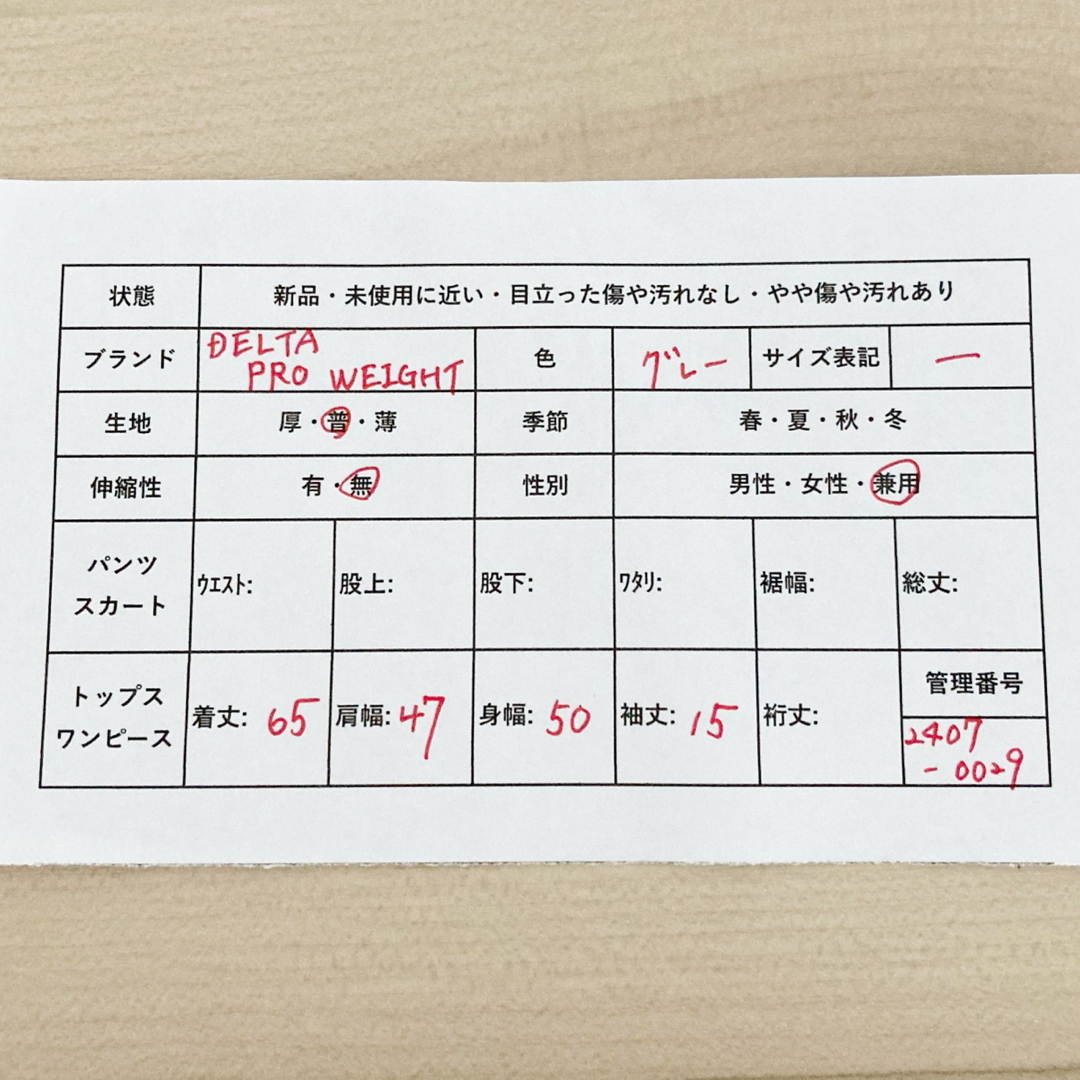 状態 新品・未使用に近い・目立った傷や汚れなし・やや傷や汚れあり
ブランド DELTA PRO WEIGHT 色 グレー サイズ表記 ー
生地 厚・普・薄 季節 春・夏・秋・冬
伸縮性 有・無 性別 男性・女性・兼用
パンツ
スカート
ｳｴｽﾄ: 股上: 股下: ﾜﾀﾘ: 裾幅: 総丈:
トップス
ワンピース
着丈: 65 肩幅: 47 身幅: 50 袖丈: 15 裄丈:
管理番号
2407
-0029